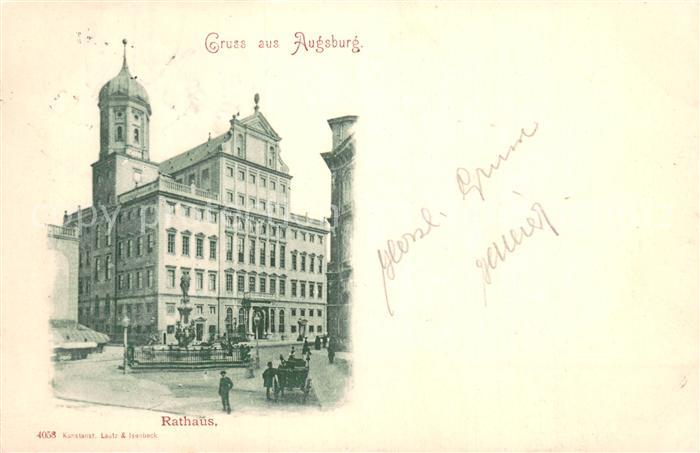 Gruss aus Augsburg.
Herzl.
Rathaus.
4058 Kunstanst. Lautz & Isenbeck